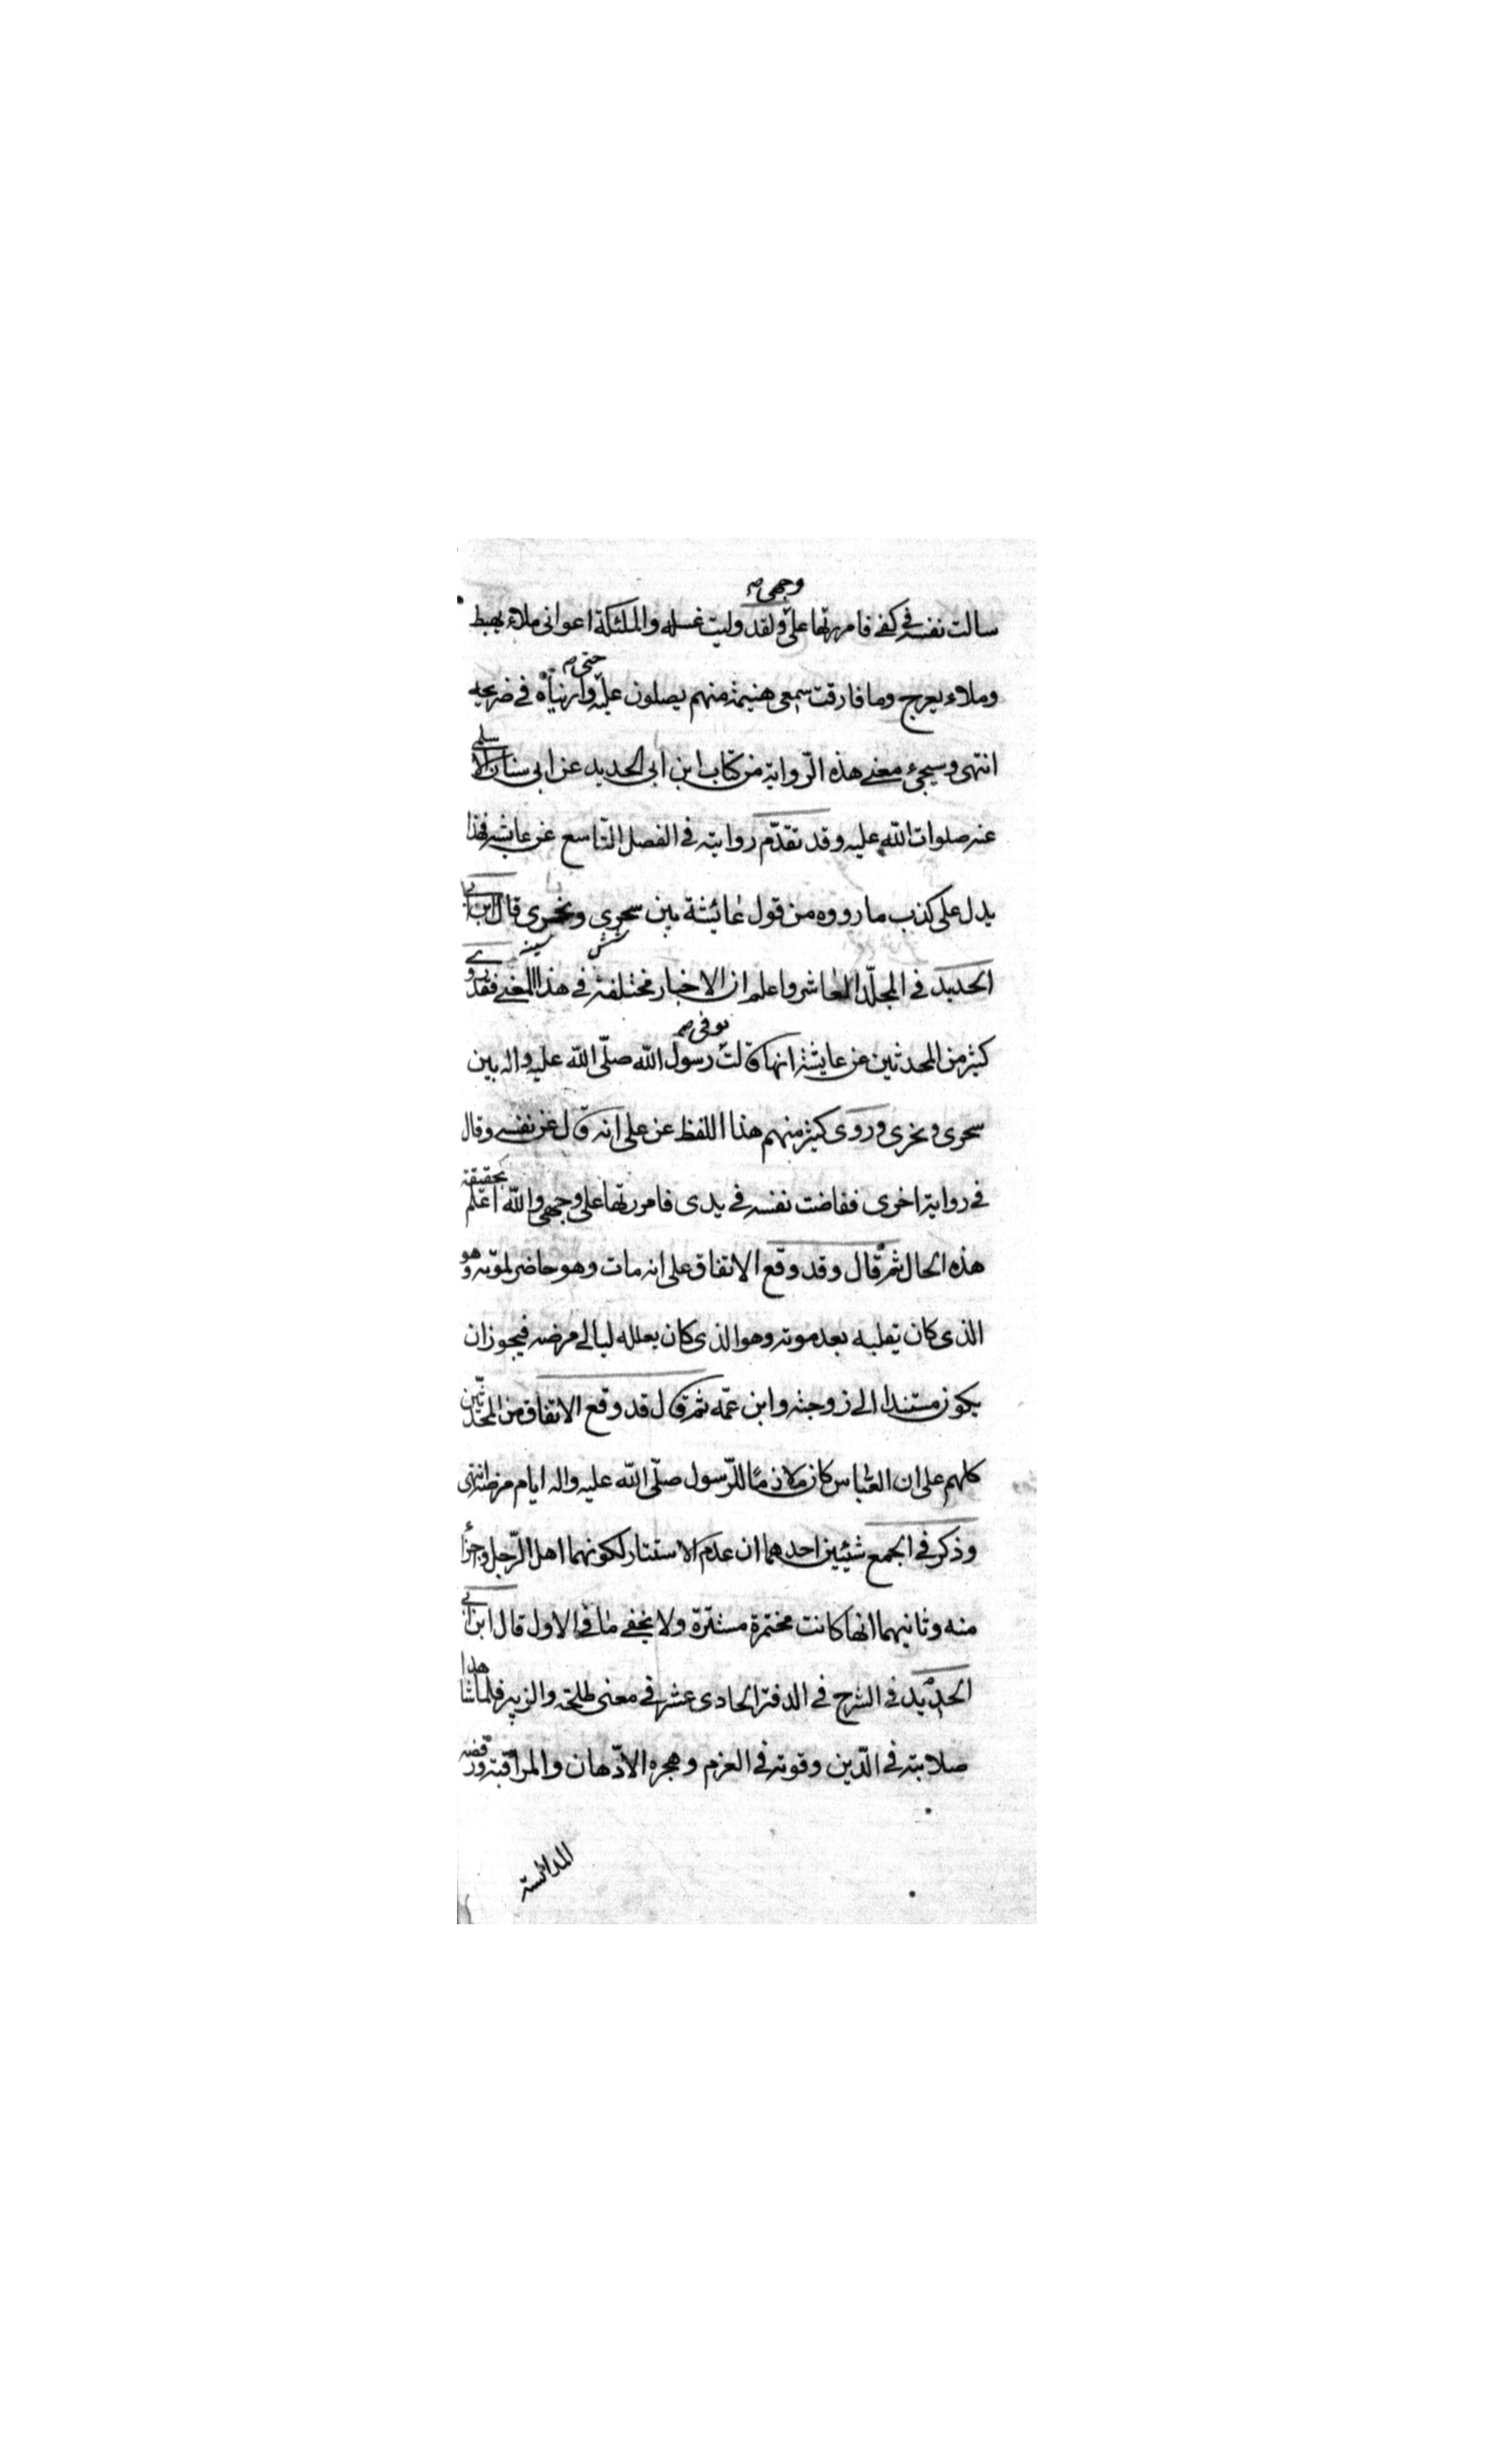 وجهى صح
سالت نفسه فى كفى فامررتها على ولقد وليت غسله والملئكة اعوانى ملاء يهبط
حتى صح
وملاء يعرج وما فارقت سمعى هنيمة منهم يصلون عليه واريناه فى ضريحه
انتهى وسيجىء معنى هذه الرواية من كتاب ابن ابى الحديد عن ابى سنان الاسلمى
عنه صلوات الله عليه وقد تقدّم روايته فى الفصل التاسع عن عايشه فهذا
يدل على كذب ما رووه من قول عائشة بين سحرى ونحرى قال ابن ابى
شش سينه
الحديد فى المجلّد العاشر واعلم ان الاخبار مختلفة فى هذا المعنى فقد روى
توفى صح
كثير من المحدثين عن عايشة انها قالت رسول الله صلّى الله عليه واله بين
سحرى ونحرى وروى كثير منهم هذا اللفظ عن على انه قال عن نفسه وقال
فى رواية اخرى ففاضت نفسه فى يدى فامررتها على وجهى والله اعلم بحقيقة
هذه الحال ثم قال وقد وقع الاتفاق على انه مات وهو حاضر لموته وهو
الذى كان يقلبه بعد موته وهو الذى كان يعلله ليالى مرضه فيجوز ان
يكون مستندا الى زوجته وابن عمّه ثم قال قد وقع الاتفاق من المحدثين
كلهم على ان العبّاس كان ملازمًا للرّسول صلّى الله عليه واله ايام مرضه انتهى
وذكر فى الجمع شيئين احدهما ان عدم الاستتار لكونهما اهل الرّجل وجزأ
منه وثانيهما انها كانت مختمرة مستترة ولا يخفى ما فى الاول قال ابن ابى
الحديد فى الشرح فى الدفتر الحادى عشر فى معنى طلحة والزبير فلما شاهدا
صلابته فى الدّين وقوته فى العزم وهجره الادّهان والمراقبة ورفضه
المدالسة